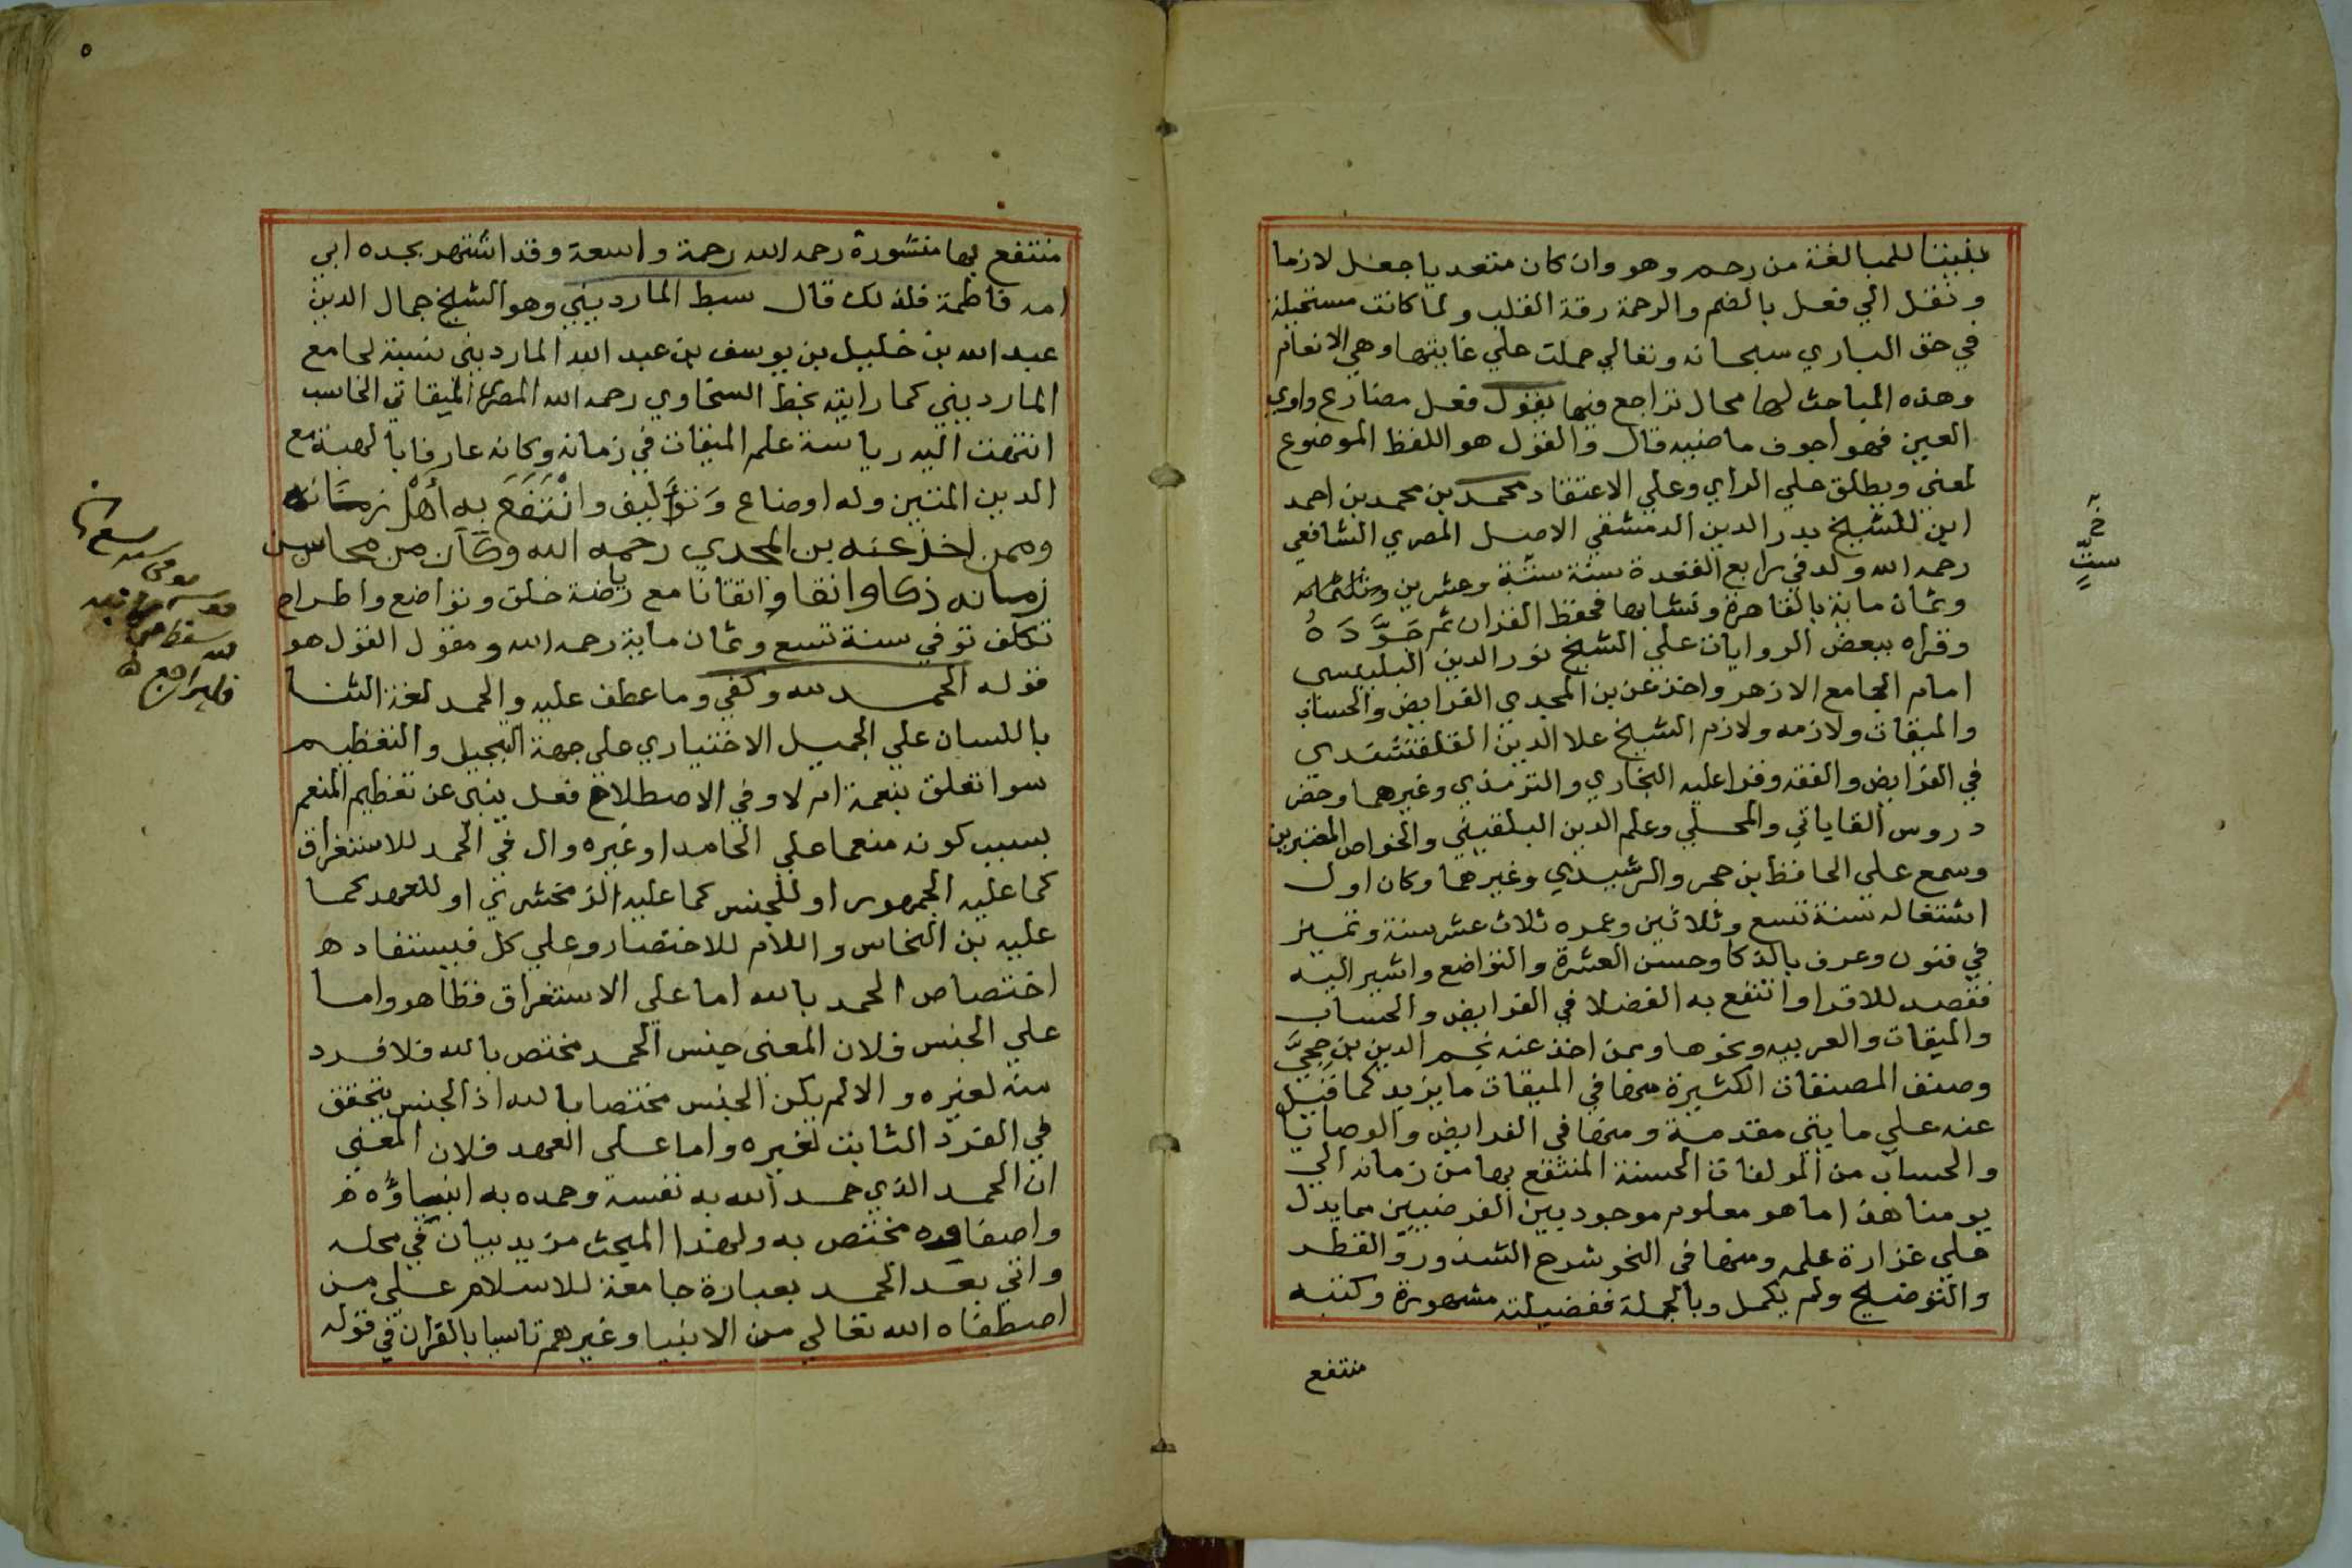 بنيتا للمبالغة من رحم وهو وان كان متعديا جعل لازما
ونقل الي فعل بالضم والرحمة رقة القلب ولما كانت مستحيلة
في حق الباري سبحانه وتعالي حملت علي غايتها وهي الانعام
وهذه المباحث لها محال تراجع منها يقول فعل مضارع واوي
العين فهو اجوف ماضيه قال والقول هو اللفظ الموضوع
لمعني ويطلق علي الراي وعلي الاعتقاد محمد بن محمد بن احمد
ابن للشيخ بدر الدين الدمشقي الاصل المصري الشافعي
رحمه الله ولد في رابع القعدة سنة ستة وعشرين
وثمان ماية بالقاهرة ونشا بها فحفظ القران ثم جَوَّدَهُ
وقراه ببعض الروايات علي الشيخ نور الدين البلبيسي
امام الجامع الازهر واخذ عن بن المجدي الفرايض والحساب
والميقات ولازمه ولازم الشيخ علا الدين القلقشندي
في الفرايض والفقه وقرا عليه البخاري والترمذي وغيرهما وحضر
دروس القاياتي والمحلي وعلم الدين البلقيني والخواص المعتبرين
وسمع علي الحافظ بن حجر والرشيدي وغيرهما وكان اول
اشتغاله سنة تسع وثلاثين وعمره ثلاث عشر سنة وتميز
في فنون وعرف بالذكا وحسن العشرة والتواضع واشير اليه
فقصد للاقرا وانتفع به الفضلا في الفرايض والحساب
والميقات والعربيه ونحوها وممن اخذ عنه نجم الدين بن حجيَّ
وصنف المصنفات الكثيرة منها في الميقات ما يزيد كما قيل
عنه علي مايتي مقدمة ومنها في الفرايض والوصايا
والحساب من المولفات الحسنة المنتفع بها من زمانه الي
يومنا هذا ما هو معلوم موجود بين الفرضيين مما يدل
علي غزارة علمه ومنها في النحو شرح الشذور والقطر
والتوضيح ولم يكمل وبالجملة ففضيلته مشهورة وكتبه
منتفع
خ
ستٍّ
٥
منتفع بها منشورة رحمه الله رحمة واسعة وقد اشتهر بجده ابي
امه فاطمة فلذلك قال سبط المارديني وهو الشيخ جمال الدين
عبد الله بن خليل بن يوسف بن عبد الله المارديني نسبة لجامع
المارديني كما رايته بخط السخاوي رحمه الله المصري الميقاتي الحاسب
انتهت اليه رياسة علم الميقات في زمانه وكانه عارفا بالهيبة مع
الدين المتين وله اوضاع وَتوَاليف وانْتَفَعَ بِهِ أَهْل زمَانه
وممن اخذ عنه بن المجدي رحمه الله وكان من محاسن
زمانه ذكا واتقا واتقانا مع رياضة خلق وتواضع واطراح
تكلف توفي سنة تسع وثمان ماية رحمه الله ومقول القول هو
قوله الحمد لله وكفي وما عطف عليه والحمد لغة الثنا
باللسان علي الجميل الاختياري علي جهة التبجيل والتعظيم
سوا تعلق بنعمة ام لا وفي الاصطلاح فعل ينبي عن تعظيم المنعم
بسبب كونه منعما علي الحامد او غيره وال في الحمد للاستغراق
كما عليه الجمهور او للجنس كما عليه الزمخشري او للعهد كما
عليه بن النحاس واللام للاختصار وعلي كل فيستفاد ه
اختصاص الحمد بالله اما علي الاستغراق فظاهر واما
علي الجنس فلان المعني جنس الحمد مختص بالله فلا فرد
منه لغيره والا لم يكن الجنس مختصا بالله اذ الجنس يتحقق
في الفرد الثابت لغيره واما علي العهد فلان المعني
ان الحمد الذي حمد الله به نفسه وحمده به انبياؤه
واصفاوه مختص به ولهذا المبحث مزيد بيان في محله
واتي بعد الحمد بعبارة جامعة للاسلام علي من
اصطفاه الله تعالي من الانبيا وغيرهم تاسيا بالقران في قوله
فليراجع